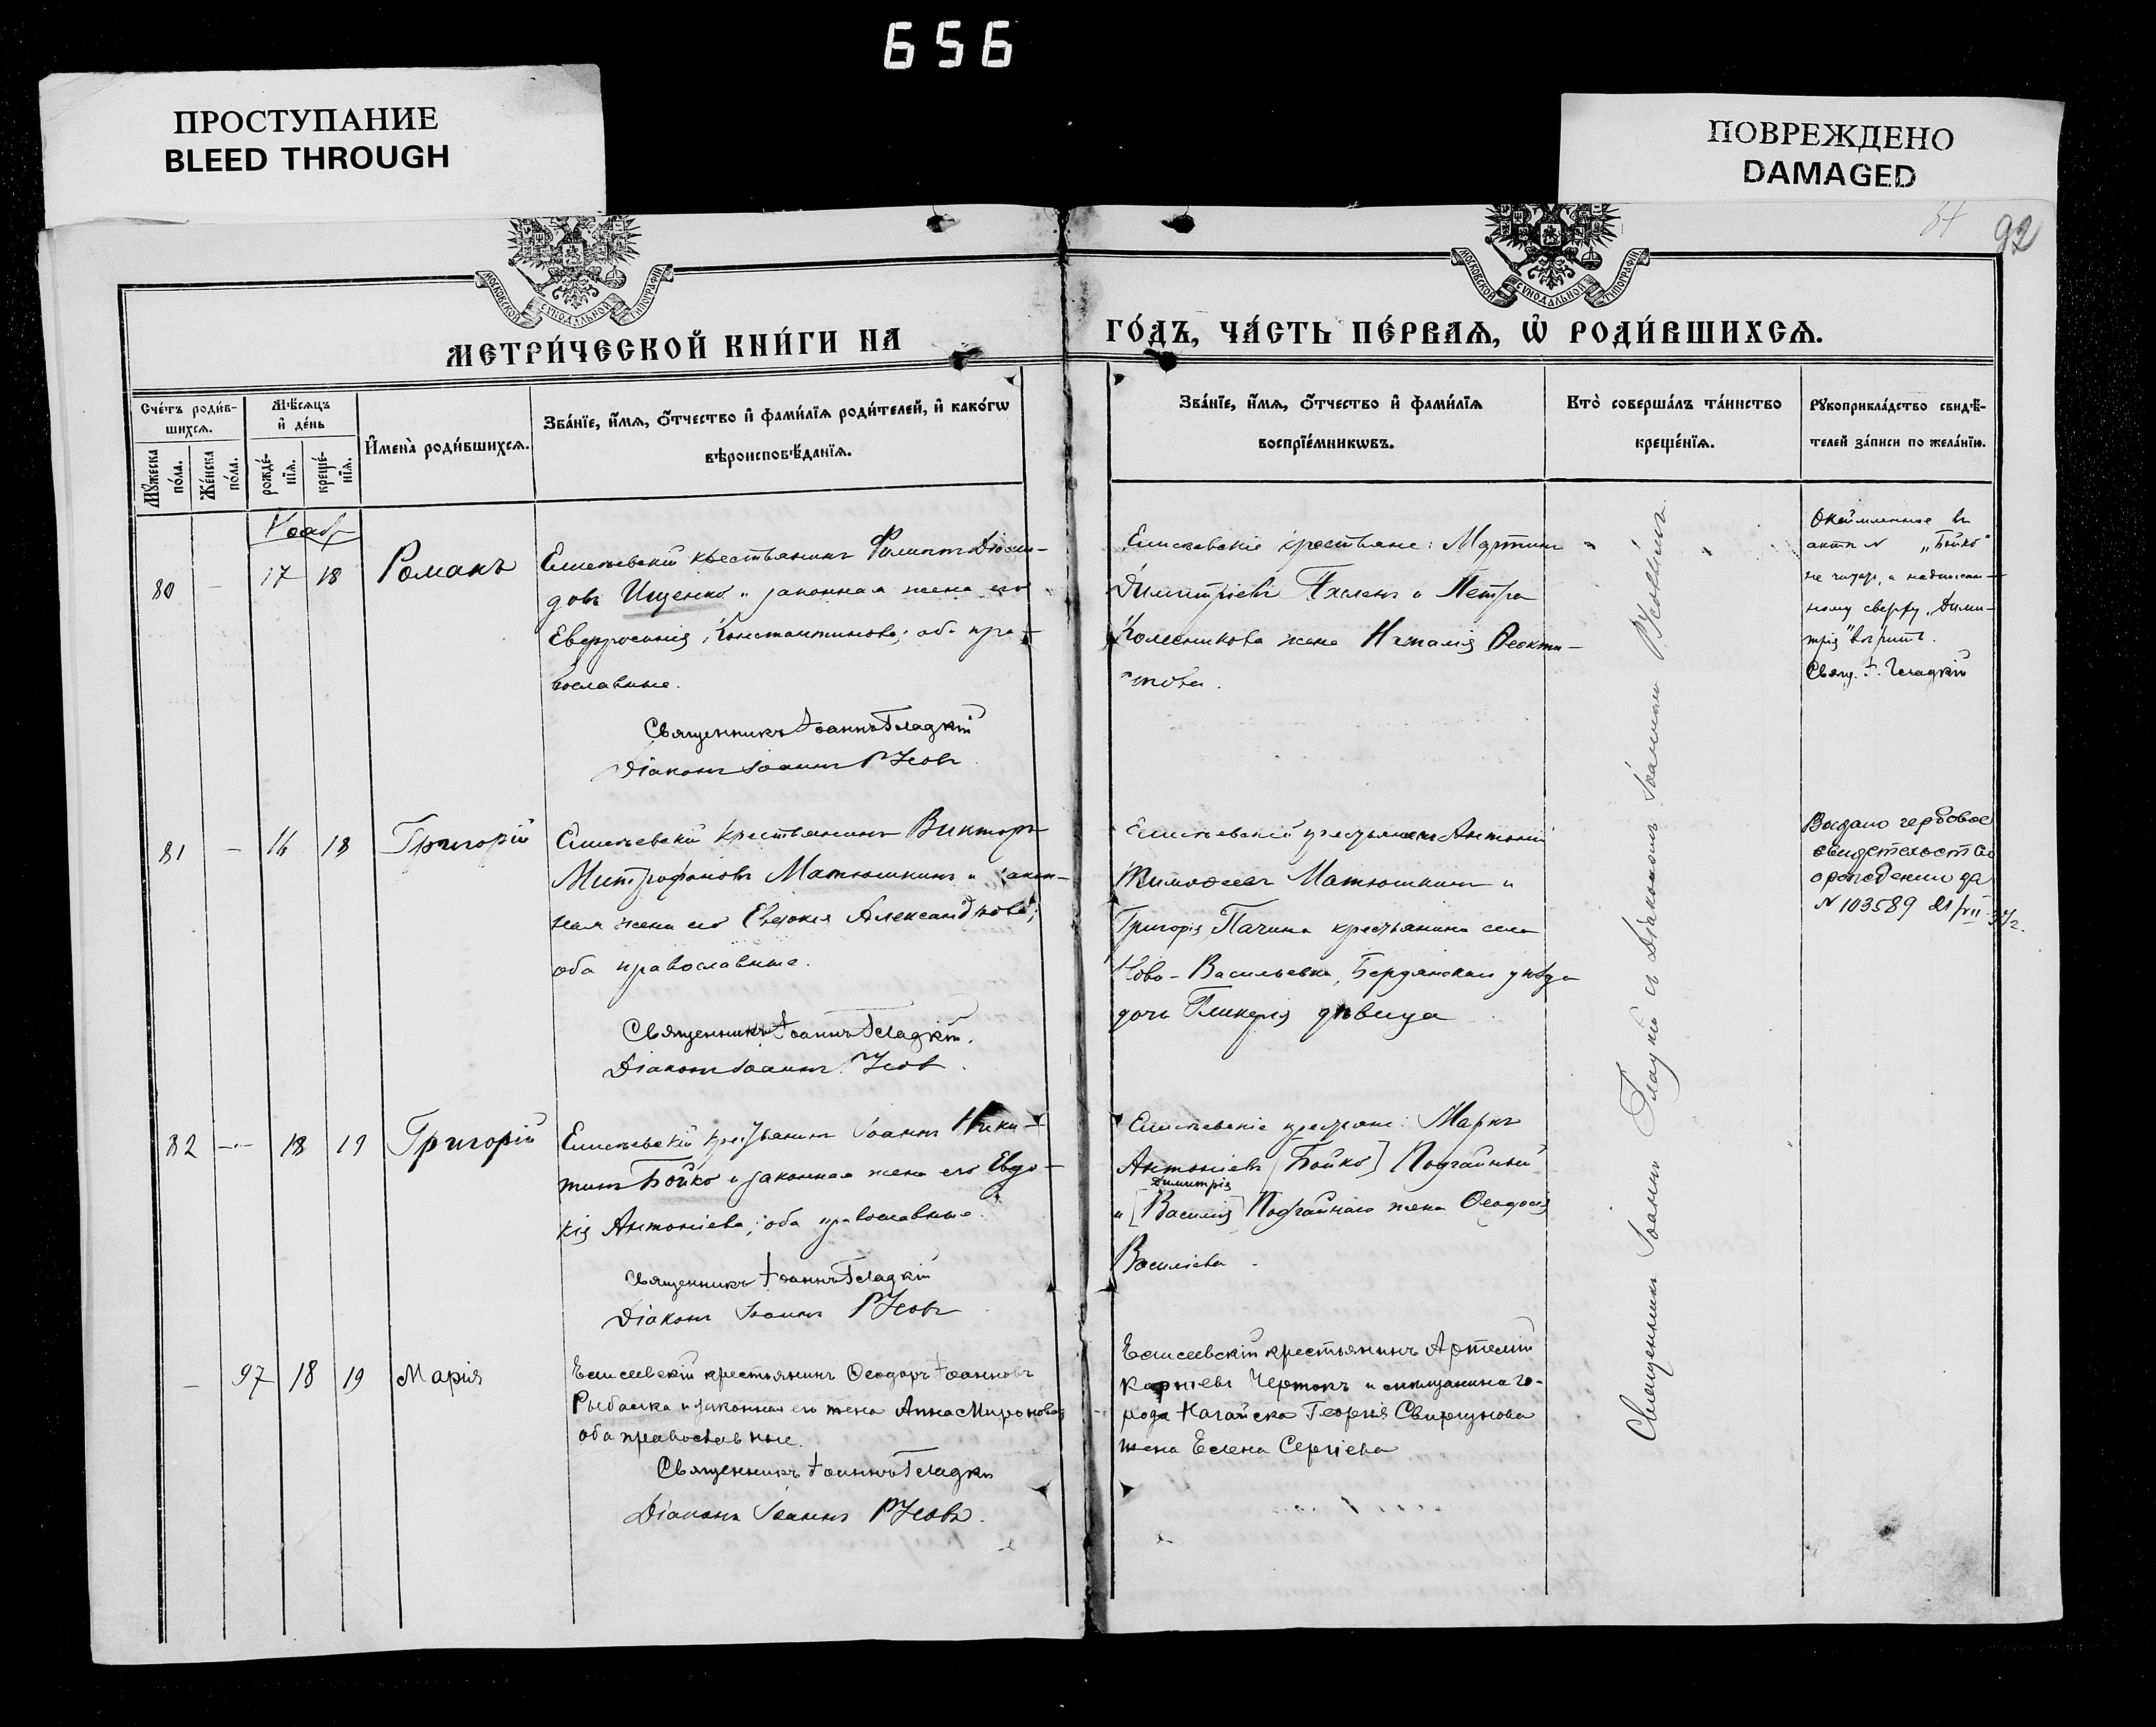 656
ПРОСТУПАНИЕ
BLEED THROUGH
ПОВРЕЖДЕНО
DAMAGED
92
МОСКОВСКОЙ СУНОДАЛЬНОЙ ТИПОГРАФІИ
МОСКОВСКОЙ СУНОДАЛЬНОЙ ТИПОГРАФІИ
МЕТРИ́ЧЕСКОЙ КНИ́ГИ НА
ГО́ДЪ, ЧА́СТЬ ПЕ́РВАѦ, Ѽ РОДИ́ВШИХСѦ.
Сче́тъ роди́в-
шихсѧ.
Мѣ́сѧцъ
и҆ де́нь
Мꙋ́жеска
по́ла.
Же́нска
по́ла.
рожде́-
нїѧ.
креще́-
нїѧ.
И҆мена̀ роди́вшихсѧ.
Зва́нїе, и҆́мѧ, ѻ҆́тчество и҆ фами́лїѧ роди́телей, и҆ како́гѡ
вѣроисповѣ́данїѧ.
Зва́нїе, и҆́мѧ, ѻ҆́тчество и҆ фами́лїѧ
воспрїе́мникѡвъ.
Кто̀ соверша́лъ та́инство
креще́нїѧ.
Рꙋкоприкла́дство свидѣ́-
телей за́писи по жела́нїю.
Ноябр
80 — 17 18 Романъ
Елисеевскій крестьянинъ Филиппъ Діоми-
довъ Ищенко и законная жена его
Евфросинія Константинова; оба пра-
вославные.
Священникъ Іоаннъ Гладкій
Діаконъ Іоаннъ Усовъ
Елисеевскіе крестьяне: Мартинъ
Димитріевъ и Петра
Колесникова жена Наталія Феокти-
стова.
въ
актѣ № „Бойко"
не читать, а надписан-
ному сверху „Дими-
трія" вѣрить.
Свящ. І. Гладкій
81 — 16 18 Григорій
Елисеевскій крестьянинъ Викторъ
Митрофановъ Матюшкинъ и закон-
ная жена его Евдокія Александрова;
оба православные.
Священникъ Іоаннъ Гладкій.
Діаконъ Іоаннъ Усовъ
Елисеевскій крестьянинъ Антоній
Тимофеевъ Матюшкинъ и
Григорія Пачина крестьянина села
Ново-Васильевки, Бердянскаго уѣзда
дочь Гликерія дѣвица
Выдано гербовое
свидетельство
о рождении за
№ 103589 21/VII
82 — 18 19 Григорій
Елисеевскій крестьянинъ Іоаннъ Ники-
тинъ Бойко и законная жена его Евдо-
кія Антоніева; оба православные.
Священникъ Іоаннъ Гладкій
Діаконъ Іоаннъ Усовъ
Елисеевскіе крестьяне: Маркъ
Антоніевъ [Бойко] Подгайный
Димитрія
и [Василія] Подгайнаго жена Феодосія
Василіева
— 97 18 19 Марія
Елисеевскій крестьянинъ Феодоръ Іоанновъ
Рыбалка и законная его жена Анна Миронова;
оба православные.
Священникъ Іоаннъ Гладкій
Діаконъ Іоаннъ Усовъ.
Елисеевскій крестьянинъ Артемій
Чертокъ и мещанина го-
рода Ногайска Георгія Свиргунова
жена Елена Сергіева
Священникъ Іоаннъ Гладкій съ Діакономъ Іоанномъ Усовымъ